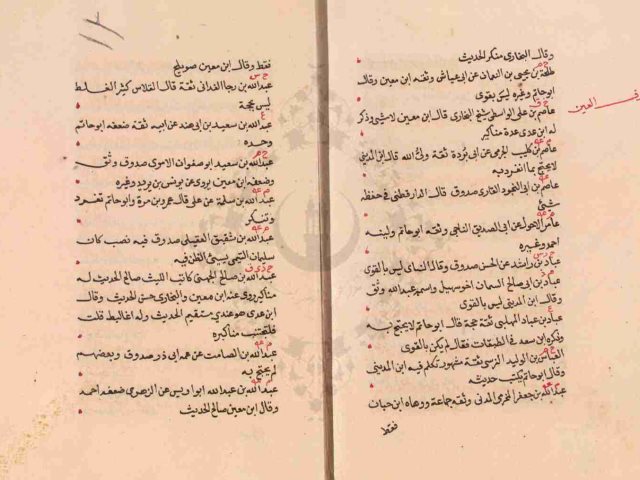 وقال البخارى منكر الحديث
طلحة بن يحيى بن النعمان عن ابى عياش وثقه ابن معين وقال
ابو حاتم وغيره ليس بقوى
عاصم بن على الواسطى شيخ البخارى قال ابن معين لا شئ وذكر
له ابن عدى عدة مناكير
عاصم بن كليب الجرمى عن ابى بردة ثقة ولى الله قال ابن المدينى
لا يحتج بما انفرد به
عاصم بن ابى النجود القارى صدوق قال الدارقطنى فى حفظه
شئ
عامر الاحول عن ابى الصديق الناجى وثقه ابو حاتم ولينه
احمد وغيره
عباد بن راشد عن الحسن صدوق وقال النساى ليس بالقوى
عباد بن ابى صالح السمان اخو سهيل واسمه عبد الله وثق
وقال ابن المدينى ليس بالقوى
عباد بن عباد المهلبى ثقة حجة قال ابو حاتم لا يحتج به
وذكره ابن سعد فى الطبقات فقال لم يكن بالقوى
العباس بن الوليد النرسى ثقة مشهور تكلم فيه ابن المدينى
وقال ابو حاتم يكتب حديثه
عبد الله بن جعفر المخرمى المدنى وثقه جماعة ووهاه ابن حبان
فقط
حرف العين
فقط وقال ابن معين صويلح
عبد الله بن رجا الغدانى ثقة قال الفلاس كثير الغلط
ليس بحجة
عبد الله بن سعيد بن ابى هند عن ابيه ثقة ضعفه ابو حاتم
وحده
عبد الله بن سعيد ابو صفوان الاموى صدوق وثق
وضعفه ابن معين يروى عن يونس بن يزيد وغيره
عبد الله بن سلمة عن على قال عمرو بن مرة وابو حاتم تعرف
وتنكر
عبد الله بن شقيق العقيلى صدوق فيه نصب كان
سليمان التيمى سيئ الظن فيه
عبد الله بن صالح الجهنى كاتب الليث صالح الحديث له
مناكير روى عنه ابن معين والبخارى حسن الحديث وقال
ابن عدى هو عندى مستقيم الحديث وله اغاليط قلت
فلتجتنب مناكيره
عبد الله بن الصامت عن عمه ابى ذر صدوق وبعضهم
لم يحتج به
عبد الله بن عبد الله ابو اويس عن الزهرى ضعفه احمد
وقال ابن معين صالح الحديث